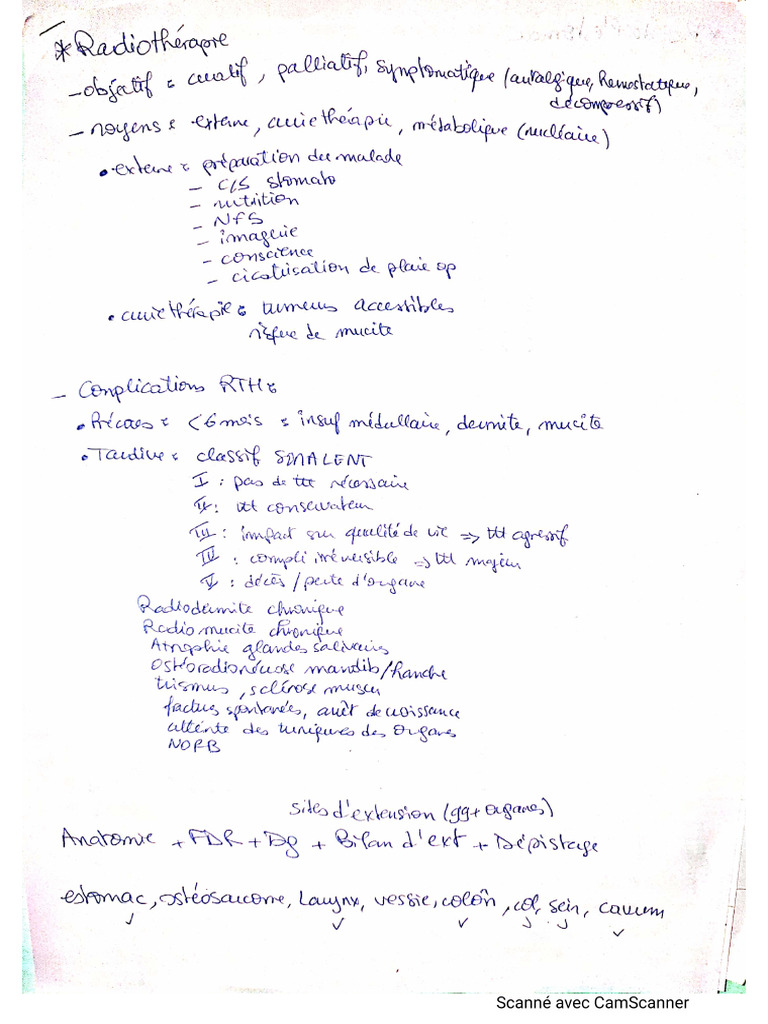 * Radiothérapie
- objectif : curatif, palliatif, symptomatique (antalgique, hemostatique,
décompressif)
- moyens : externe, curiethérapie, métabolique (nucléaire)
• externe : préparation du malade
- C/S stomato
- nutrition
- NFS
- imagerie
- conscience
- cicatrisation de plaie op
• curiethérapie : tumeurs accessibles
risque de mucite
- Complications RTH :
• Précoces : <6 mois : insuf médullaire, dermite, mucite
• Tardive : classif SMALENT
I : pas de ttt nécessaire
II : ttt conservateur
III : impact sur qualité de vie => ttt agressif
IV : compli irréversible => ttt majeur
V : décès / perte d'organe
Radiodermite chronique
Radio mucite chronique
Atrophie glandes salivaires
Ostéoradionécrose mandib/hanche
trismus, sclérose muscu
factures spontanées, arrêt de croissance
attente des tuniques des organes
NORB
sites d'extension (gg + organes)
Anatomie + FDR + Dg + Bilan d'ext + Dépistage
estomac, ostéosarcome, Larynx, vessie, colon, col, sein, cavum
Scanné avec CamScanner